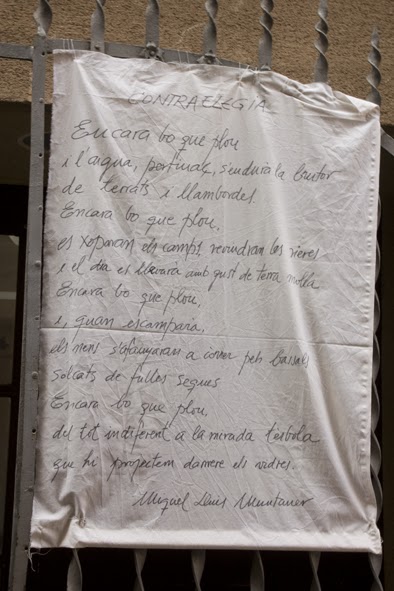 CONTRAELEGIA
Encara bo que plou
i l'aigua, portinaç, s'endurà la brutor
de terrats i llambordes.
Encara bo que plou,
es xoparan els camps, revindran les rieres
i el dia es llevarà amb gust de terra molla.
Encara bo que plou,
i, quan escamparà,
els nens s'afanyaran a córrer pels bassals
solcats de fulles seques
Encara bo que plou,
del tot indiferent a la mirada tèrbola
que hi projectem darrere els vidres.
Miquel Lluís Muntaner